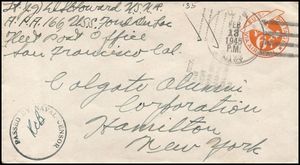 Howard USNR.
A.P.A. 166 U.S.S.
Fleet Post Office
San Francisco Cal.
FEB
13
P.M.
Colgate Alumni
Corporation
Hamilton
New York
PASSED BY NAVAL CENSOR